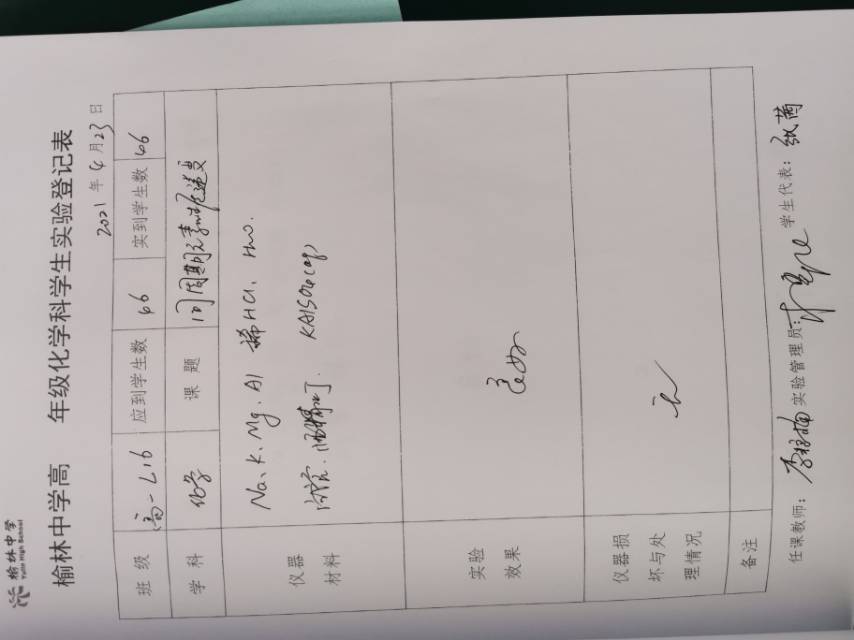 榆林中学
Yulin High School
榆林中学高 年级化学科学生实验登记表
2021年4月23日
班级 高一L16 应到学生数 66 实到学生数 66
学科 化学 课题 同周期元素性质递变
仪器材料 Na、K、Mg、Al 稀HCl、H₂O.
酒精灯、KAlSO4(aq)
实验效果 良好
仪器损坏与处理情况 无
备注
任课教师: 实验管理员: 学生代表: